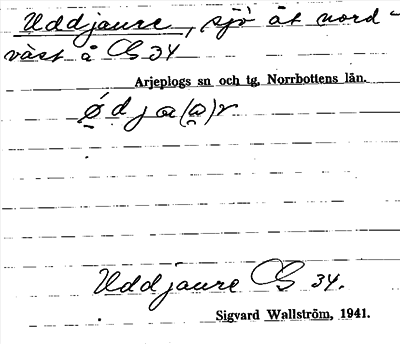 Uddjaure, sjö åt nord-
väst å GS 34
Arjeplogs sn och tg, Norrbottens län.
Uddjaure GS 34.
Sigvard Wallström, 1941.